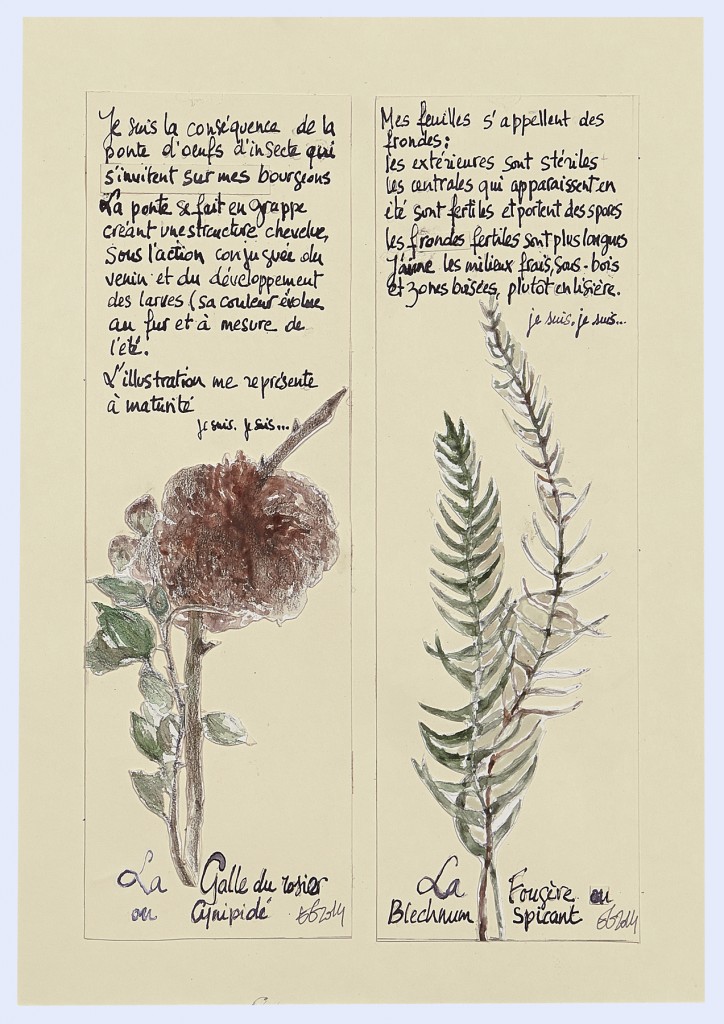 Je suis la conséquence de la
ponte d'oeufs d'insecte qui
s'invitent sur mes bourgeons
La ponte se fait en grappe
créant une structure chevelue,
sous l'action conjuguée du
venin et du développement
des larves (sa couleur évolue
au fur et à mesure de
l'été.
L'illustration me représente
à maturité
je suis. je suis...
La Galle du rosier
ou Cynipidé
Mes feuilles s'appellent des
frondes:
les extérieures sont stériles
les centrales qui apparaissent en
été sont fertiles et portent des spores
les frondes fertiles sont plus longues
J'aime les milieux frais, sous-bois
et zones boisées, plutôt en lisière.
je suis. je suis...
La Fougère ou
Blechnum Spicant